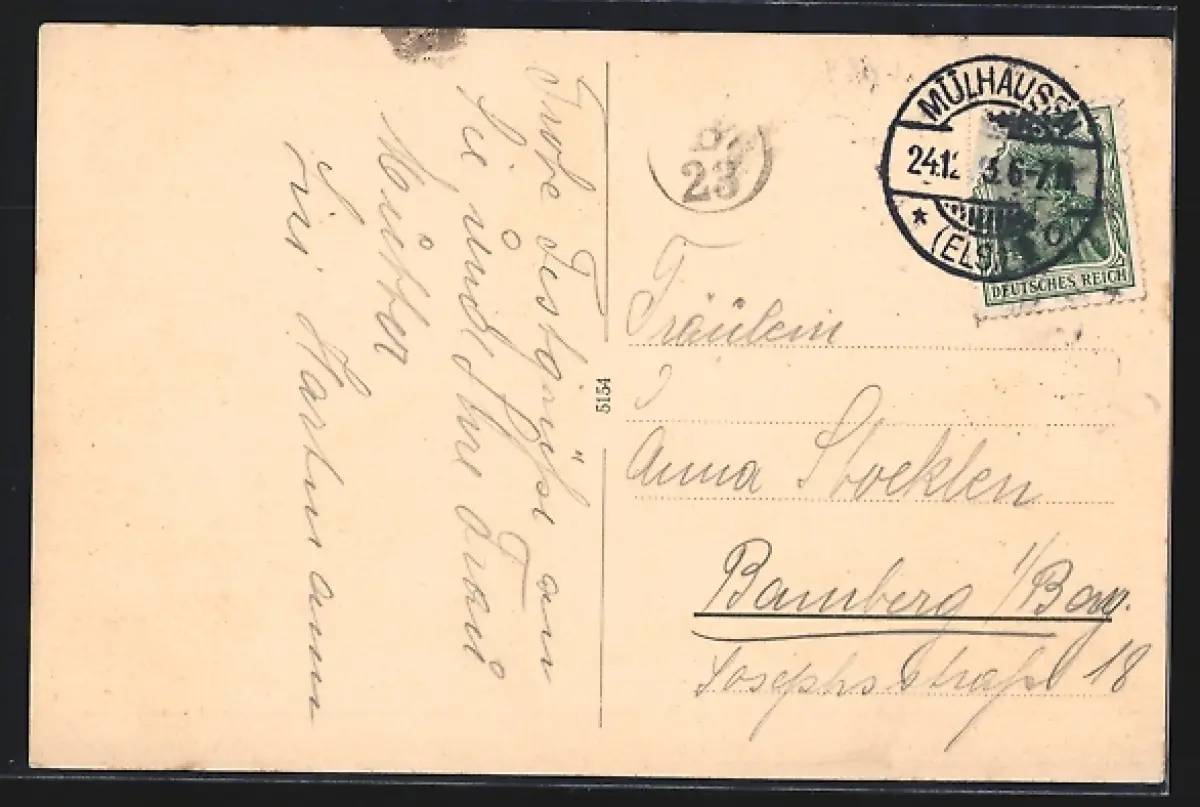 Frohe Festgrüße an
Sie und Ihre Frau
Mutter
Hartmann
5154
23
MÜLHAUSEN
24.12. 3. 6-7 N.
* (ELS.)
DEUTSCHES REICH
Fräulein
Anna Stocklen
Bamberg i/Bay.
Josephsstraße 18